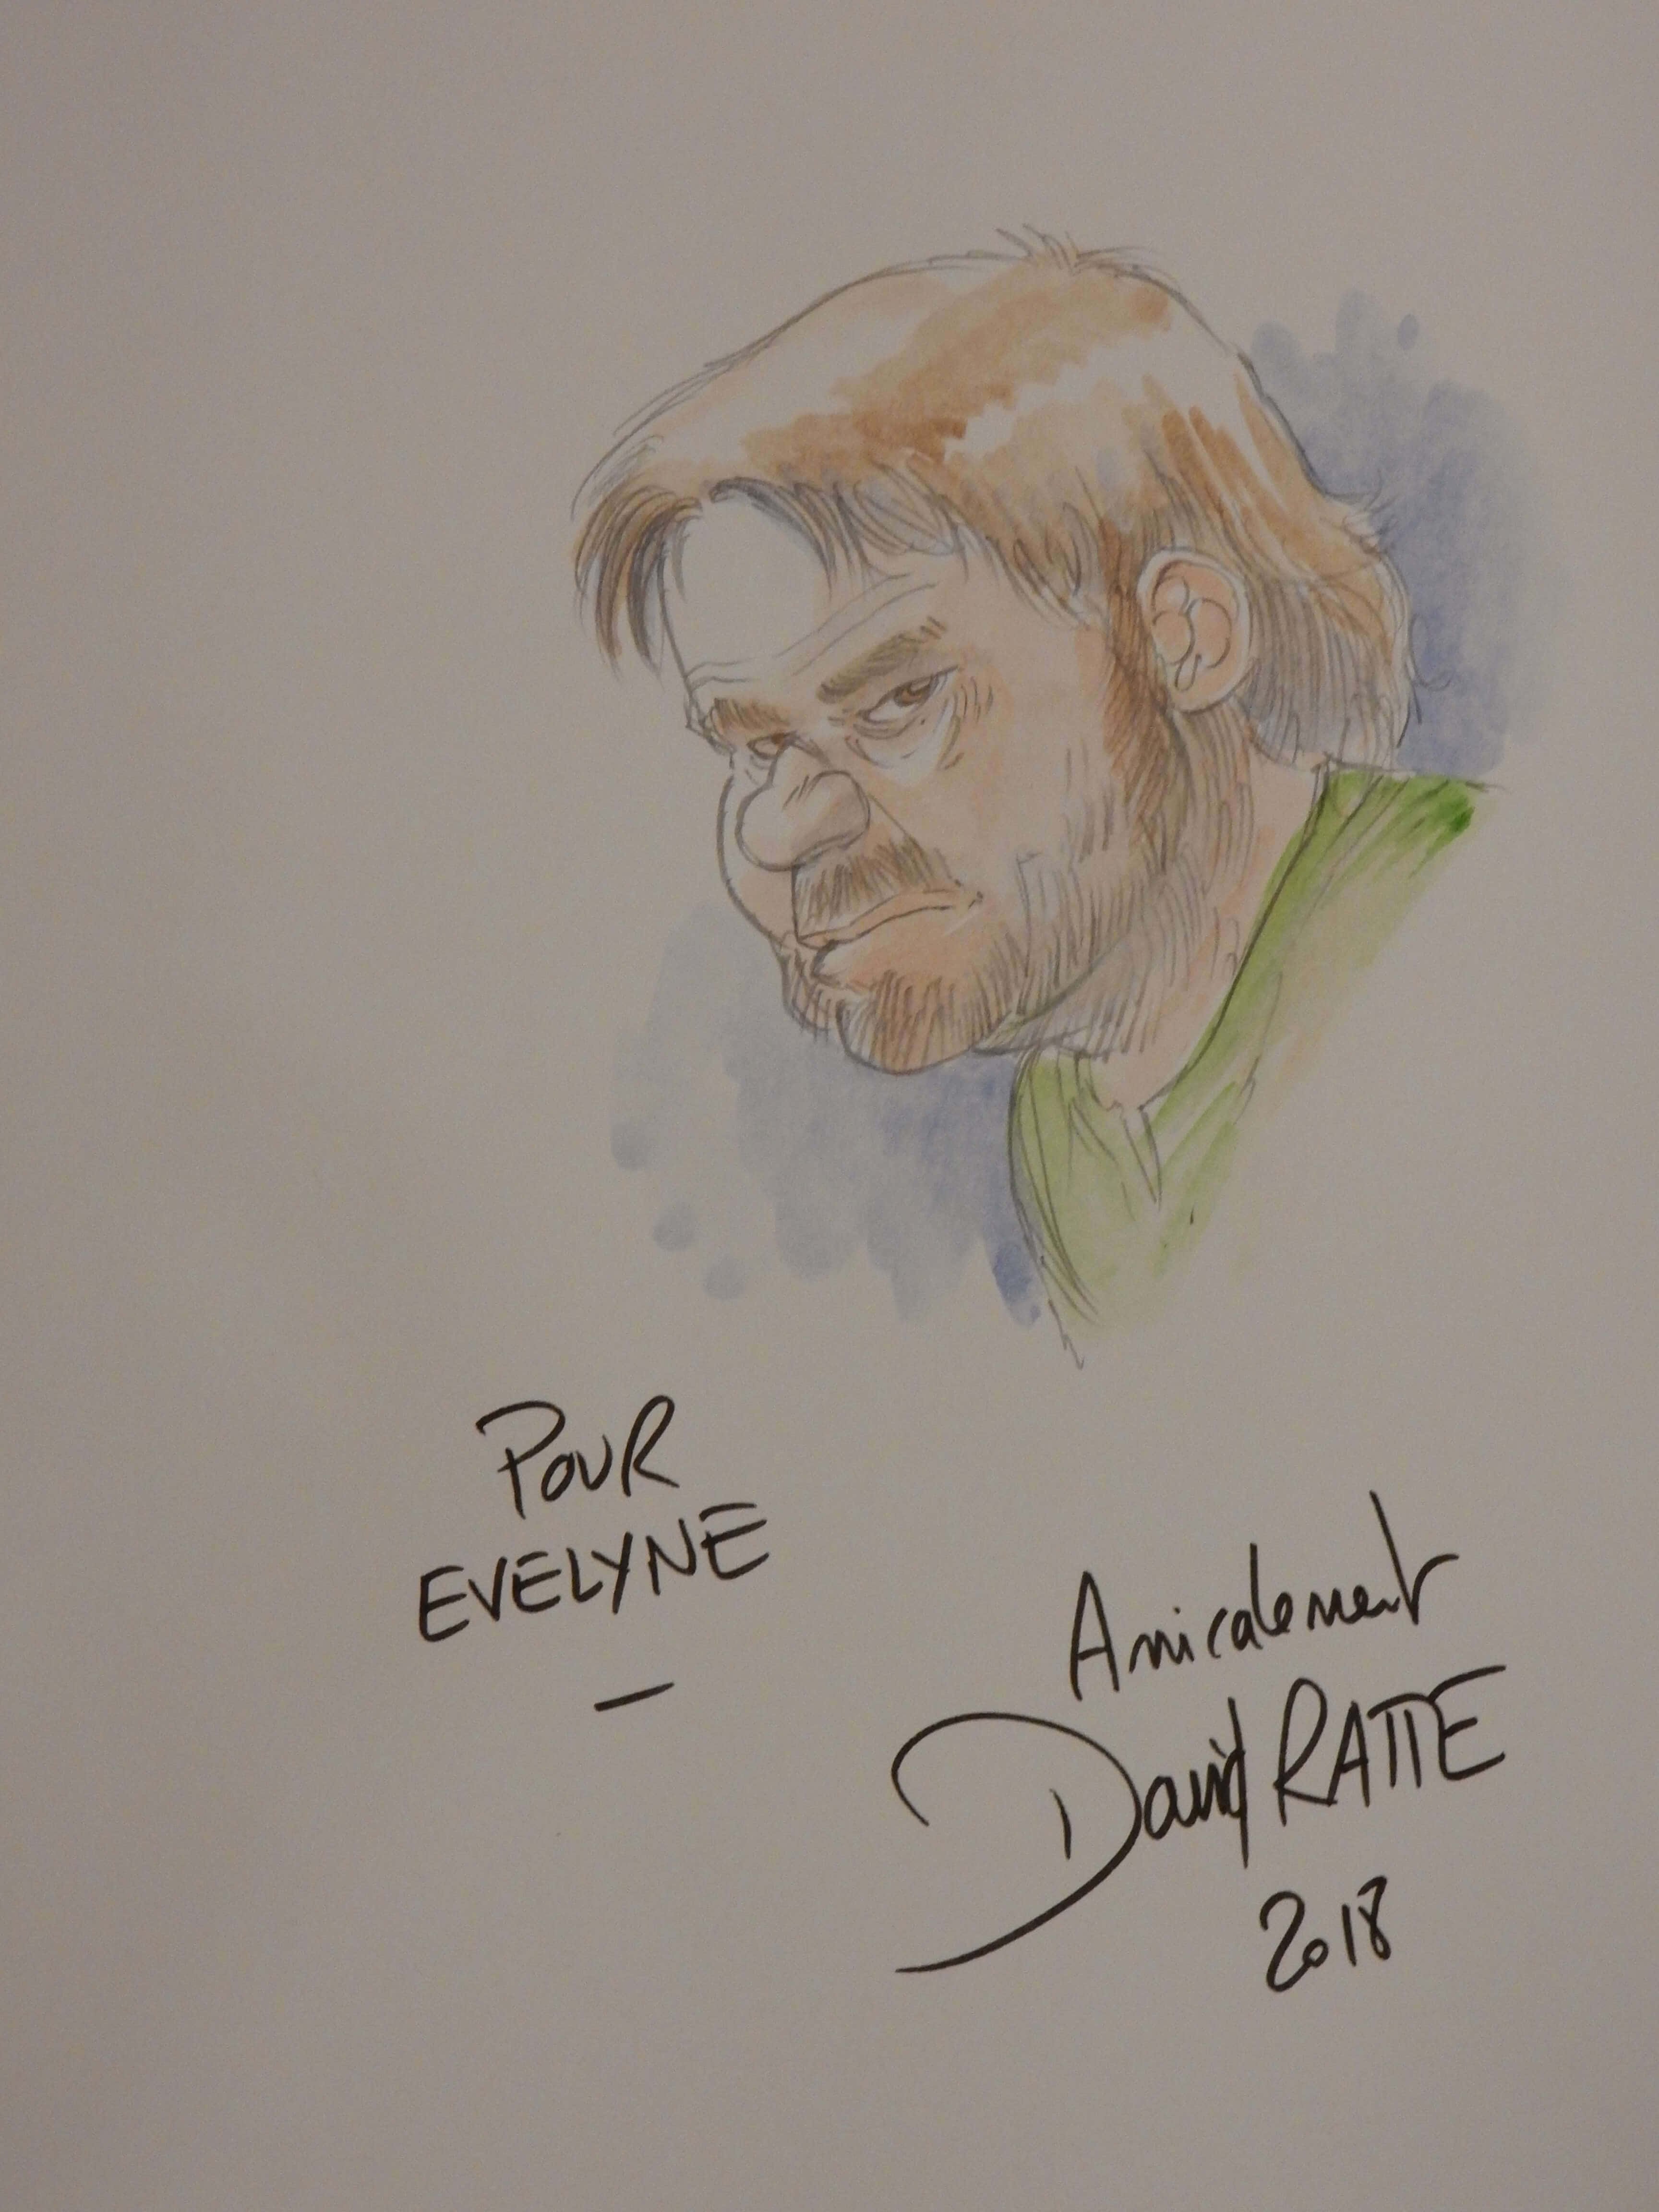 POUR
EVELYNE
Amicalement
David RATTE
2018